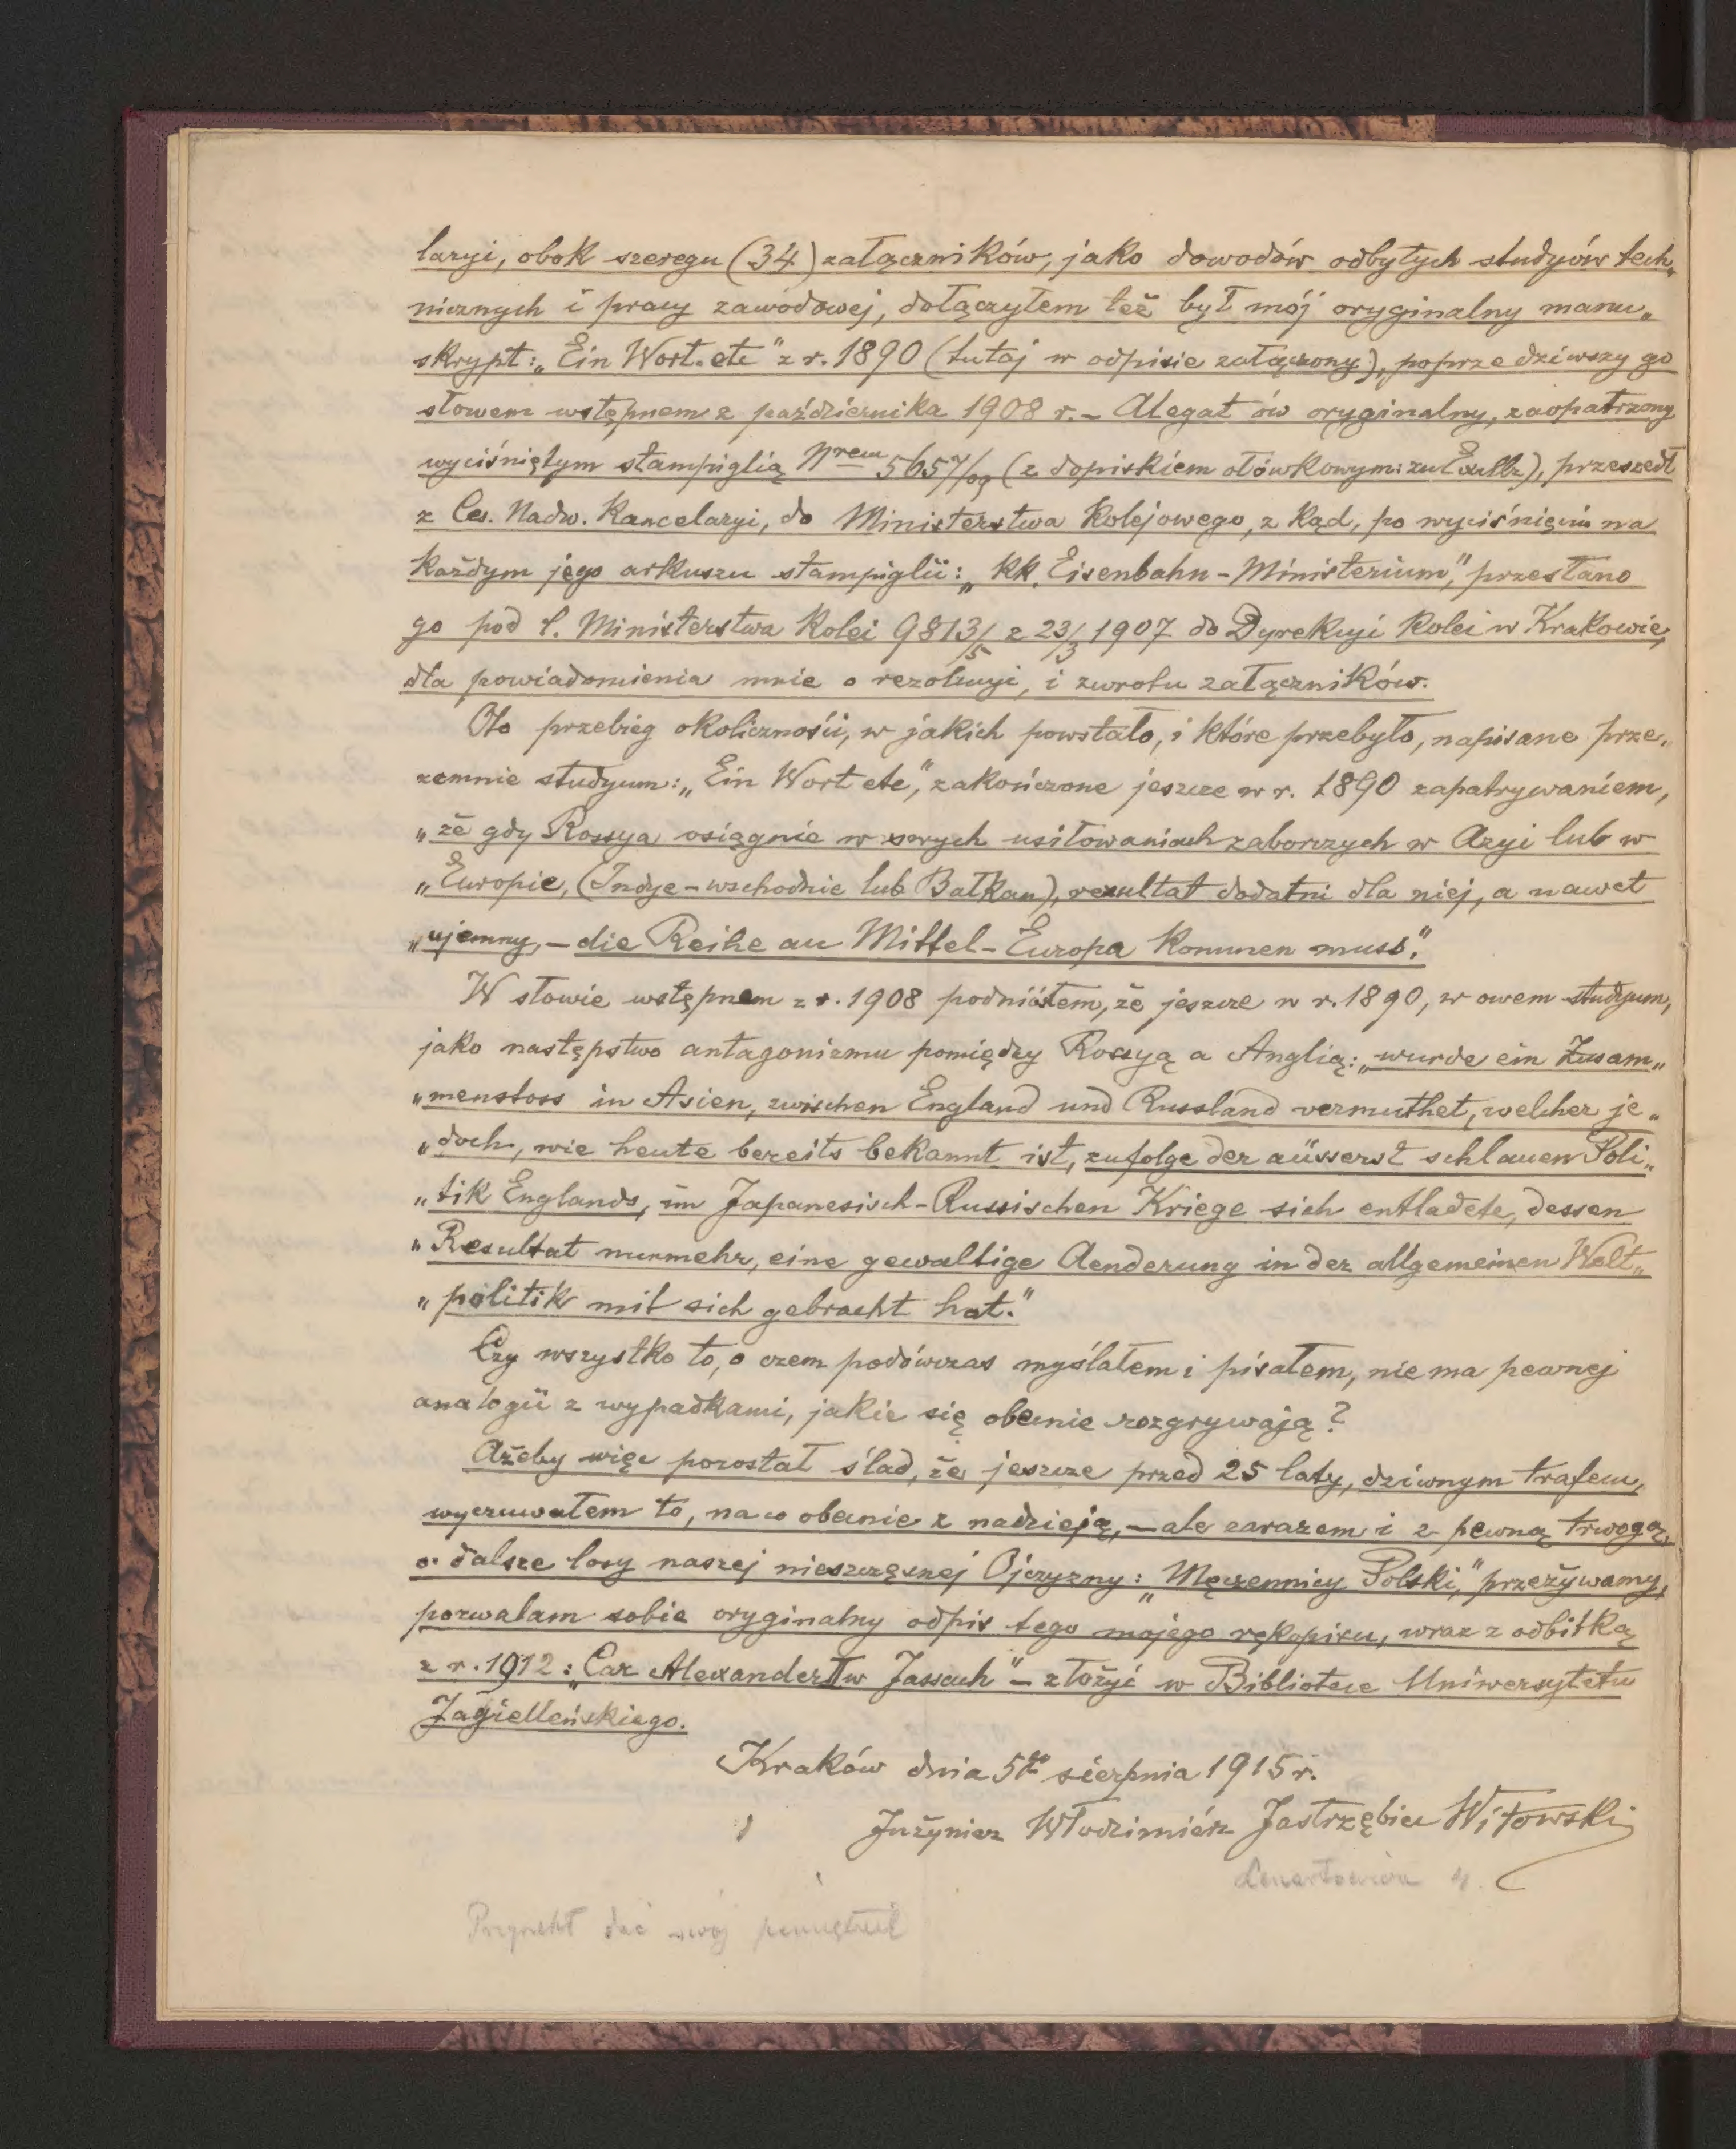 laryi, obok szeregu (34) załączników, jako dowodów odbytych studyów tech„
nicznych i pracy zawodowej, dołączyłem też był mój oryginalny manu„
skrypt: „Ein Wort. etc" z r. 1890 (tutaj w odpisie załączony), poprzedziwszy go
słowem wstępnem z października 1908 r. – Alegat ów oryginalny, zaopatrzony
wyciśniętym stampiglią Nrem 5657/09 (z dopiskiem ołówkowym: zu ), przeszedł
z Ces. Nadw. Kancelaryi, do Ministerstwa Kolejowego, z kąd, po wyciśnięciu na
każdym jego arkuszu stampiglii: „KK. Eisenbahn-Ministerium", przesłano
go pod l. Ministerstwa Kolei 9813/5 z 23/3 1907 do Dyrekcyi Kolei w Krakowie,
dla powiadomienia mnie o rezolucyi, i zwrotu załączników.
Oto przebieg okoliczności, w jakich powstało, i które przebyło, napisane prze„
zemnie studyum: „Ein Wort etc", zakończone jeszcze w r. 1890 zapatrywaniem,
„że gdy Rossya osiągnie w swych usiłowaniach zaborczych w Azyi lub w
„Europie, (Indye-wschodnie lub Bałkan), rezultat dodatni dla niej, a nawet
„ujemny, – die Reihe an Mittel-Europa kommen muss."
W słowie wstępnem z r. 1908 podniosłem, że jeszcze w r. 1890, w owem studyum,
jako następstwo antagonizmu pomiędzy Rossyą a Anglią: „wurde ein Zusam„
„menstoss in Asien, zwischen England und Russland vermuthet, welcher je„
„doch, wie heute bereits bekannt ist, zufolge der aüsserst schlauen Poli„
„tik Englands, im Japanesisch-Russischen Kriege sich entladete, dessen
„Resultat nunmehr, eine gewaltige Aenderung in der allgemeinen Welt„
„politik mit sich gebracht hat."
Czy wszystko to, o czem podówczas myślałem i pisałem, nie ma pewnej
analogii z wypadkami, jakie się obecnie rozgrywają?
Ażeby więc pozostał ślad, że jeszcze przed 25 laty, dziwnym trafem,
wyczuwałem to, na co obecnie z nadzieją, – ale zarazem i z pewną trwogą,
o dalsze losy naszej nieszczęsnej Ojczyzny: „Męczennicy Polski", przeżywamy,
pozwalam sobie oryginalny odpis tego mojego rękopisu, wraz z odbitką
z r. 1912: „Car Alexander I w Jassach" – złożyć w Bibliotece Uniwersytetu
Jagiellońskiego.
Kraków dnia 5go sierpnia 1915 r.
Inżynier Włodzimiérz Jastrzębiec Witowski
Lenartowicza 4.
Przyrzekł dać swój pamiętnik